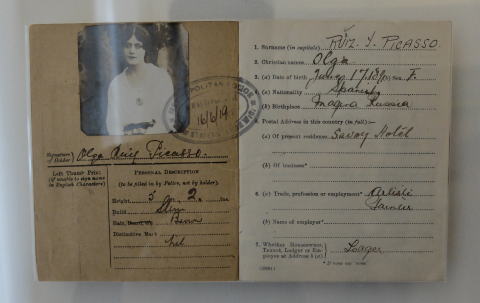 POLITAN POLICE
16/6/19
Signature of Holder } Olga Ruiz Picasso.
Left Thumb Print
(if unable to sign name
in English Characters)
PERSONAL DESCRIPTION
(to be filled in by Police, not by holder).
Height 5 2
Build Slim
Hair,
Distinctive Mark
Nil
1. Surname (in capitals) RUIZ. Y. PICASSO.
2. Christian names Olga
3. (a) Date of birth June 17
4. (a) Nationality Spanish
(b) Birthplace Russia
Postal Address in this country (in full):—
(a) Of present residence Savoy Hotel
(b) Of business*
6. (a) Trade, profession or employment* Artistic
Painter
(b) Name of employer*
7. Whether Householder,
Tenant, Lodger or Employee at Address 5 (a)